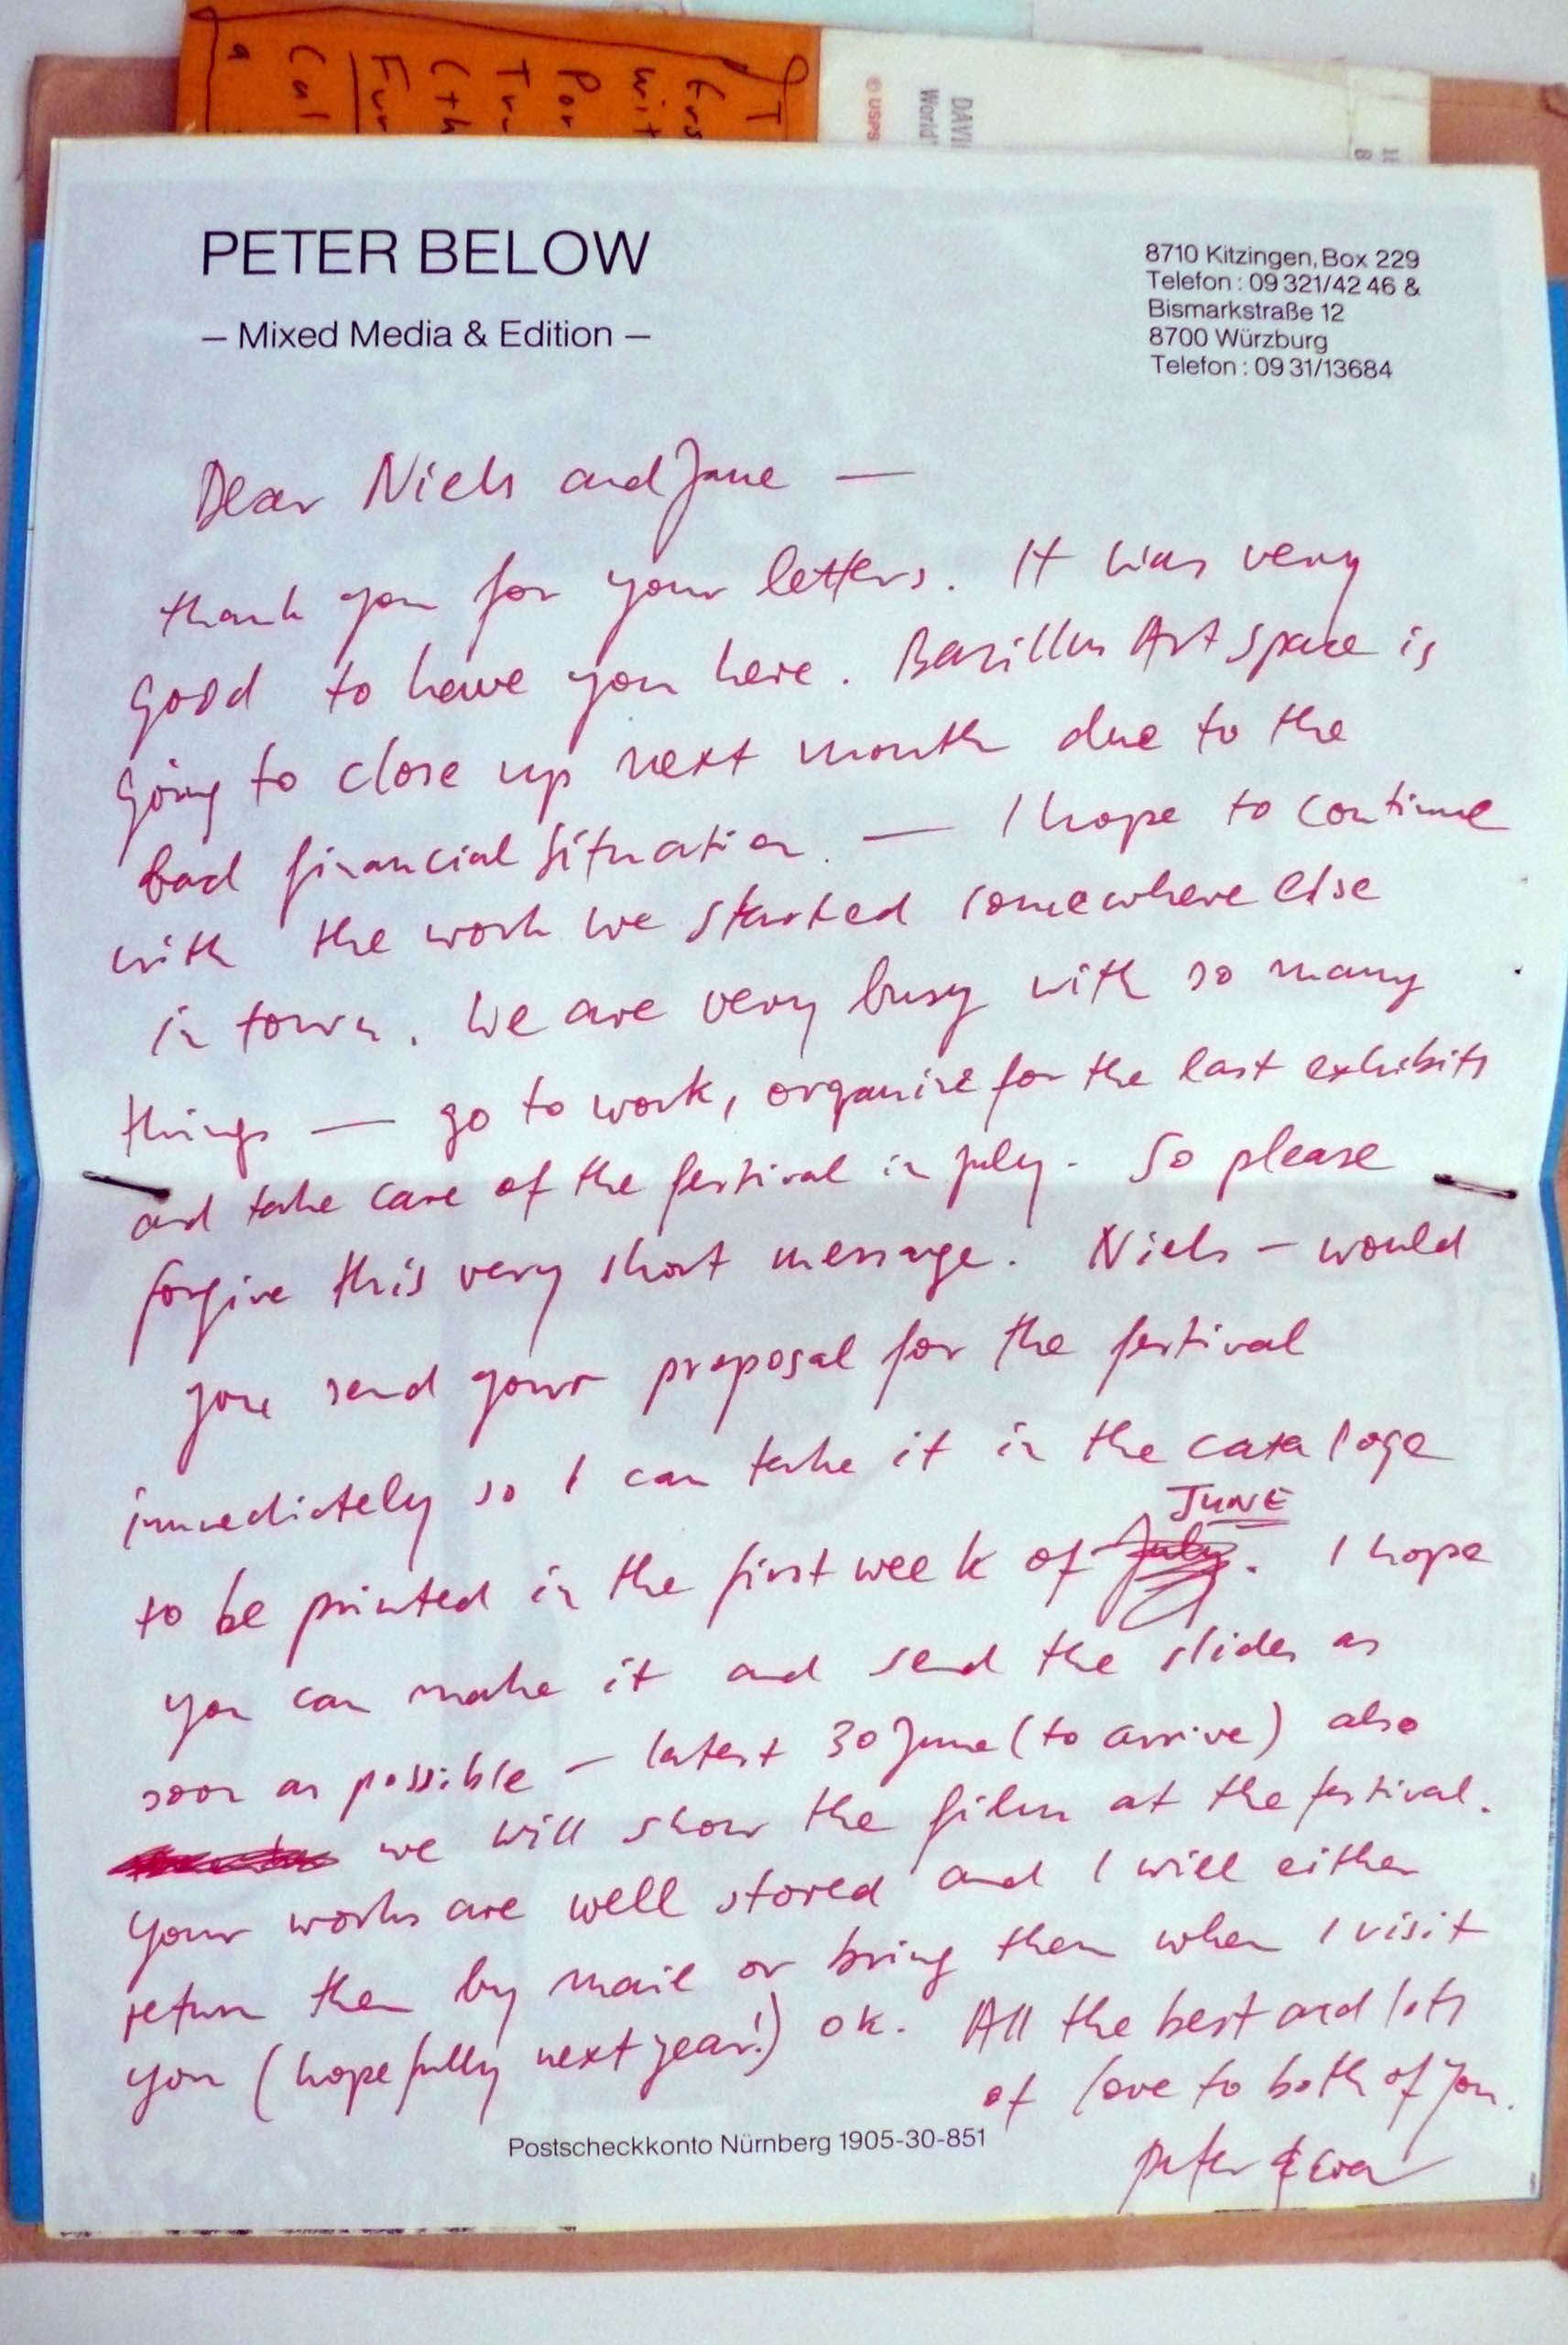 T
Ers
wit
Por
Tr
Cth
Fur
Cal
a
DAVI
World'
© USPS
8
PETER BELOW
– Mixed Media & Edition –
8710 Kitzingen, Box 229
Telefon : 09 321/42 46 &
Bismarkstraße 12
8700 Würzburg
Telefon : 09 31/13684
Dear Niels and Jane —
thank you for your letters. It was very
good to have you here. Bazillus Art Space is
going to close up next month due to the
bad financial situation. — I hope to continue
with the work we started somewhere else
in town. We are very busy with so many
things — go to work, organize for the last exhibits
and take care of the festival in july. So please
forgive this very short message. Niels – would
you send your proposal for the festival
immediately so I can take it in the cataloge
JUNE
to be printed in the first week of July. I hope
you can make it and send the slides as
soon as possible – latest 30 June (to arrive) also
we will show the film at the festival.
Your works are well stored and I will either
return them by mail or bring them when I visit
you (hopefully next year!) ok. All the best and lots
of love to both of you.
Postscheckkonto Nürnberg 1905-30-851
Peter & Eva